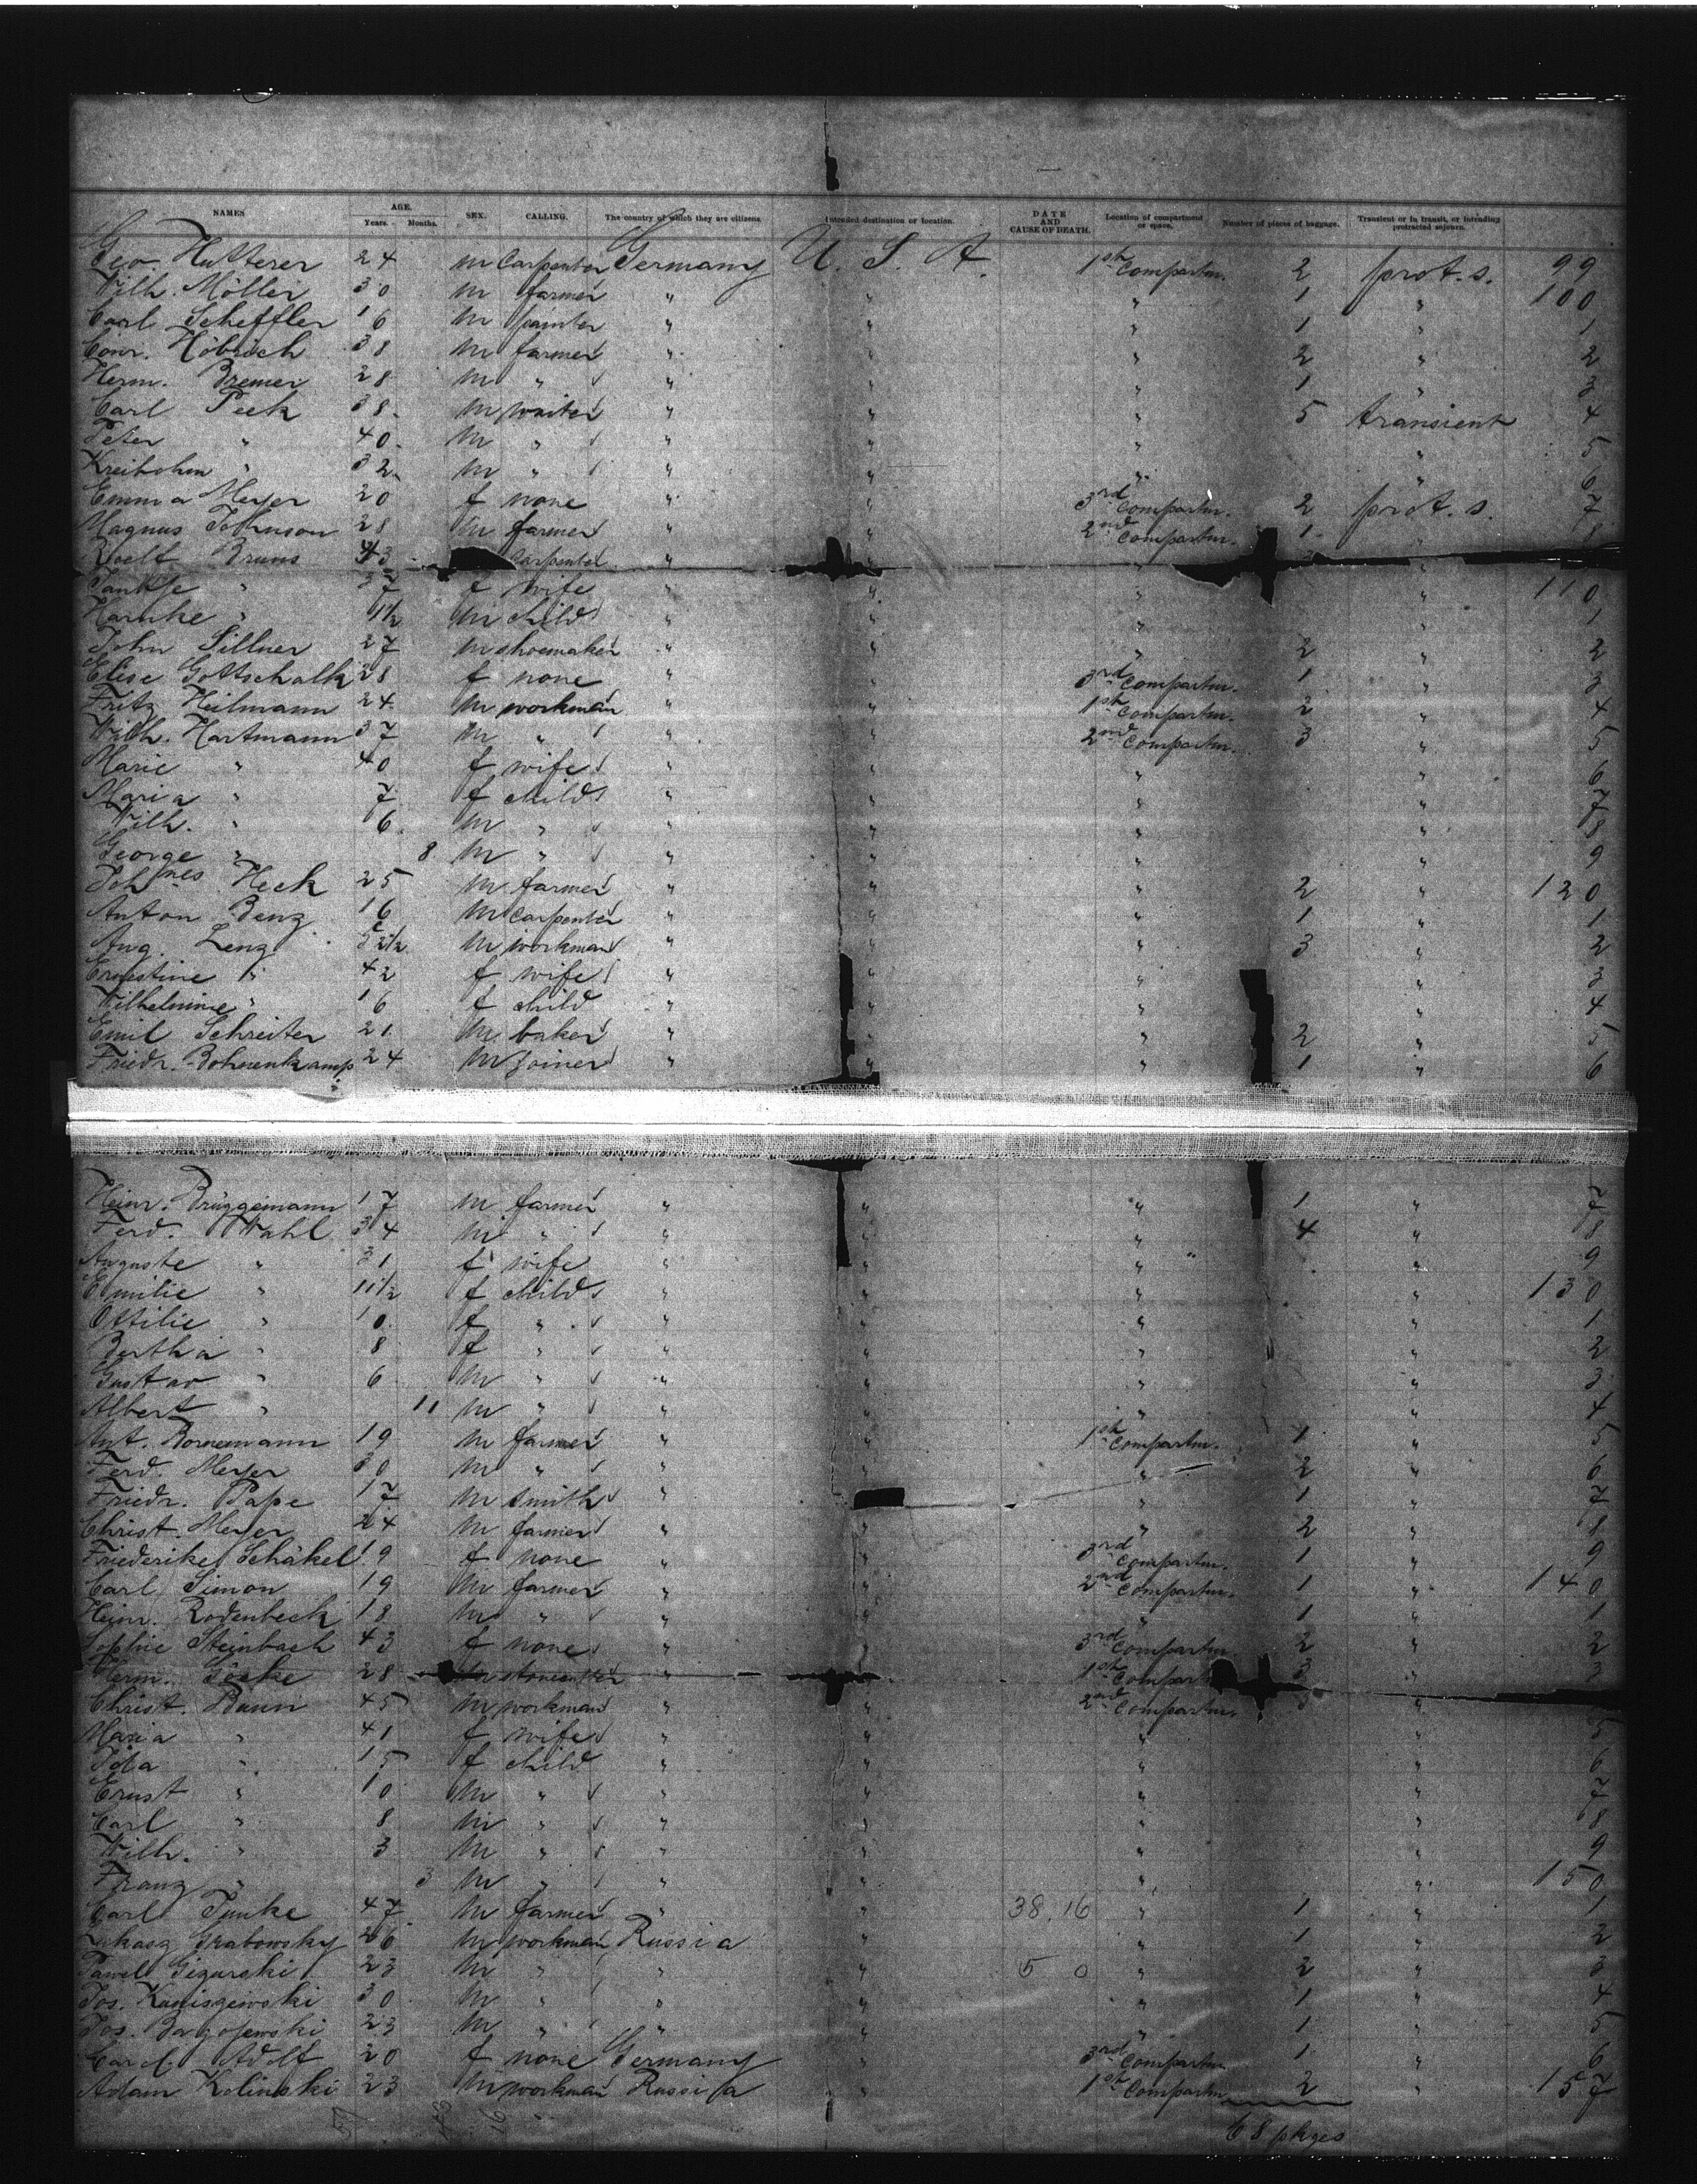 NAMES AGE. Years. Months. SEX. CALLING. The country of which they are citizens. Intended destination or location. DATE AND CAUSE OF DEATH. Location of compartment or space. Number of pieces of baggage. Transient or in transit, or intending protracted sojourn.
Geo Hutterer 24 m Carpenter Germany U. S. A. 1st Compartm. 2 prot. s. 99
Wilh. Möller 30 m farmer " " " 1 " 100
Carl Scheffler 16 m painter " " " 1 " 1
Conr. Höbrich 38 m farmer " " " 2 " 2
Herm. Bremer 28 m " " " " 1 " 3
Carl Peek 38 m waiter " " " 5 transient 4
Peter " 40 m " " " " " 5
" 32 m " " " " " 6
Emma Meyer 20 f none " " 3rd Compartm. 2 prot. s. 7
Magnus Johnson 28 m farmer " " 2nd Compartm. 1 " 8
Roelf Bruns 43 carpenter " "
" 37 f wife " " " " 110
Harnke " 1½ m child " " " " 1
John Sillner 27 m shoemaker " " " 2 " 2
Elise Gottschalk 28 f none " " 3rd Compartm. 1 " 3
Fritz Heilmann 24 m workman " " 1st Compartm. 2 " 4
Wilh. Hartmann 37 m " " " 2nd Compartm. 3 " 5
Marie " 40 f wife " " " " 6
Maria " 7 f child " " " " 7
Wilh. " 6 m " " " " " 8
George " 8 m " " " " " 9
Johnes Heck 25 m farmer " " " 2 " 120
Anton Benz 16 m Carpenter " " " 1 " 1
Aug. Lenz m workman " " " 3 " 2
Ernestine " 42 f wife " " " " 3
Wilhelmine " 16 f child " " " " 4
Emil Schreiter 21 m baker " " " 2 " 5
Friedr. Bohnenkamp 24 m joiner " " " 1 " 6
Heinr. Brüggemann 17 m farmer " " " 1 " 7
Ferd. Wahl 34 m " " " " 4 " 8
Auguste " 31 f wife " " " " 9
Emilie " 11½ f child " " " " 130
Ottilie " 10 f " " " " " 1
Bertha " 8 f " " " " " 2
Gustav " 6 m " " " " " 3
Albert " 11 m " " " " " 4
Ant. Bornemann 19 m farmer " " 1st Compartm. 1 " 5
Ferd. Meyer 30 m " " " " 2 " 6
Friedr. Pape 17 m smith " " " 1 " 7
Christ. Meyer 24 m farmer " " " 2 " 8
Friederike Schäkel 19 f none " " 3rd Compartm. 1 " 9
Carl Simon 19 m farmer " " 2nd Compartm. 1 " 140
Heinr. Rodenbeck 18 m " " " " 1 " 1
Sophie Steinbach 43 f none " " 3rd Compartm. 2 " 2
Herm. Göcke 28 m stonecutter " " 1st Compart 3 " 3
Christ. Baum 45 m workman " " 2nd Compartm. "
Maria " 41 f wife " " " " 5
Ida " 15 f child " " " " 6
Ernst " 10 m " " " " " 7
Carl " 8 m " " " " " 8
Wilh. " 3 m " " " " " 9
Franz " 3 m " " " " " 150
Carl Tunke 47 m farmer " " 38.16 " 1 " 1
Grabowsky 26 m workman Russia " " 1 " 2
Pawel Gizarski 23 m " " " 5 0 " 2 " 3
Jos. Kanisgewski 30 m " " " " 1 " 4
Jos. 23 m " " " " 1 " 5
Carol. Adolf 20 f none Germany " 3rd Compartm. 1 " 6
Adam Kolinski 23 m workman Russia " 1st Compartm. 2 " 157
68 pkges